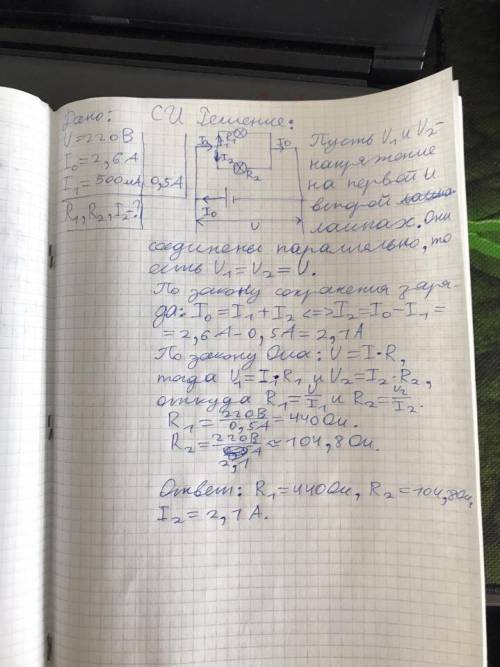 Дано:
U=220В
I₀=2,6А
I₁=500мА
R₁, R₂, I₂-?
СИ
0,5А
Решение:
I₀
I₁
I₂
R₂
I₀
I₀
U
Пусть U₁ и U₂-
напряжение
на первой и
второй
лампах. Они
соединены параллельно, то
есть U₁=U₂=U.
По закону сохранения заря-
да: I₀=I₁+I₂<=>I₂=I₀-I₁=
=2,6А-0,5А=2,1А
По закону Ома: U=I·R,
тогда U₁=I₁·R₁ и U₂=I₂·R₂,
откуда R₁=U/I₁ и R₂=U₂/I₂.
R₁=220В/0,5А=440Ом.
R₂=220В/2,1А≈104,8Ом.
Ответ: R₁=440Ом, R₂=104,8Ом,
I₂=2,1А.